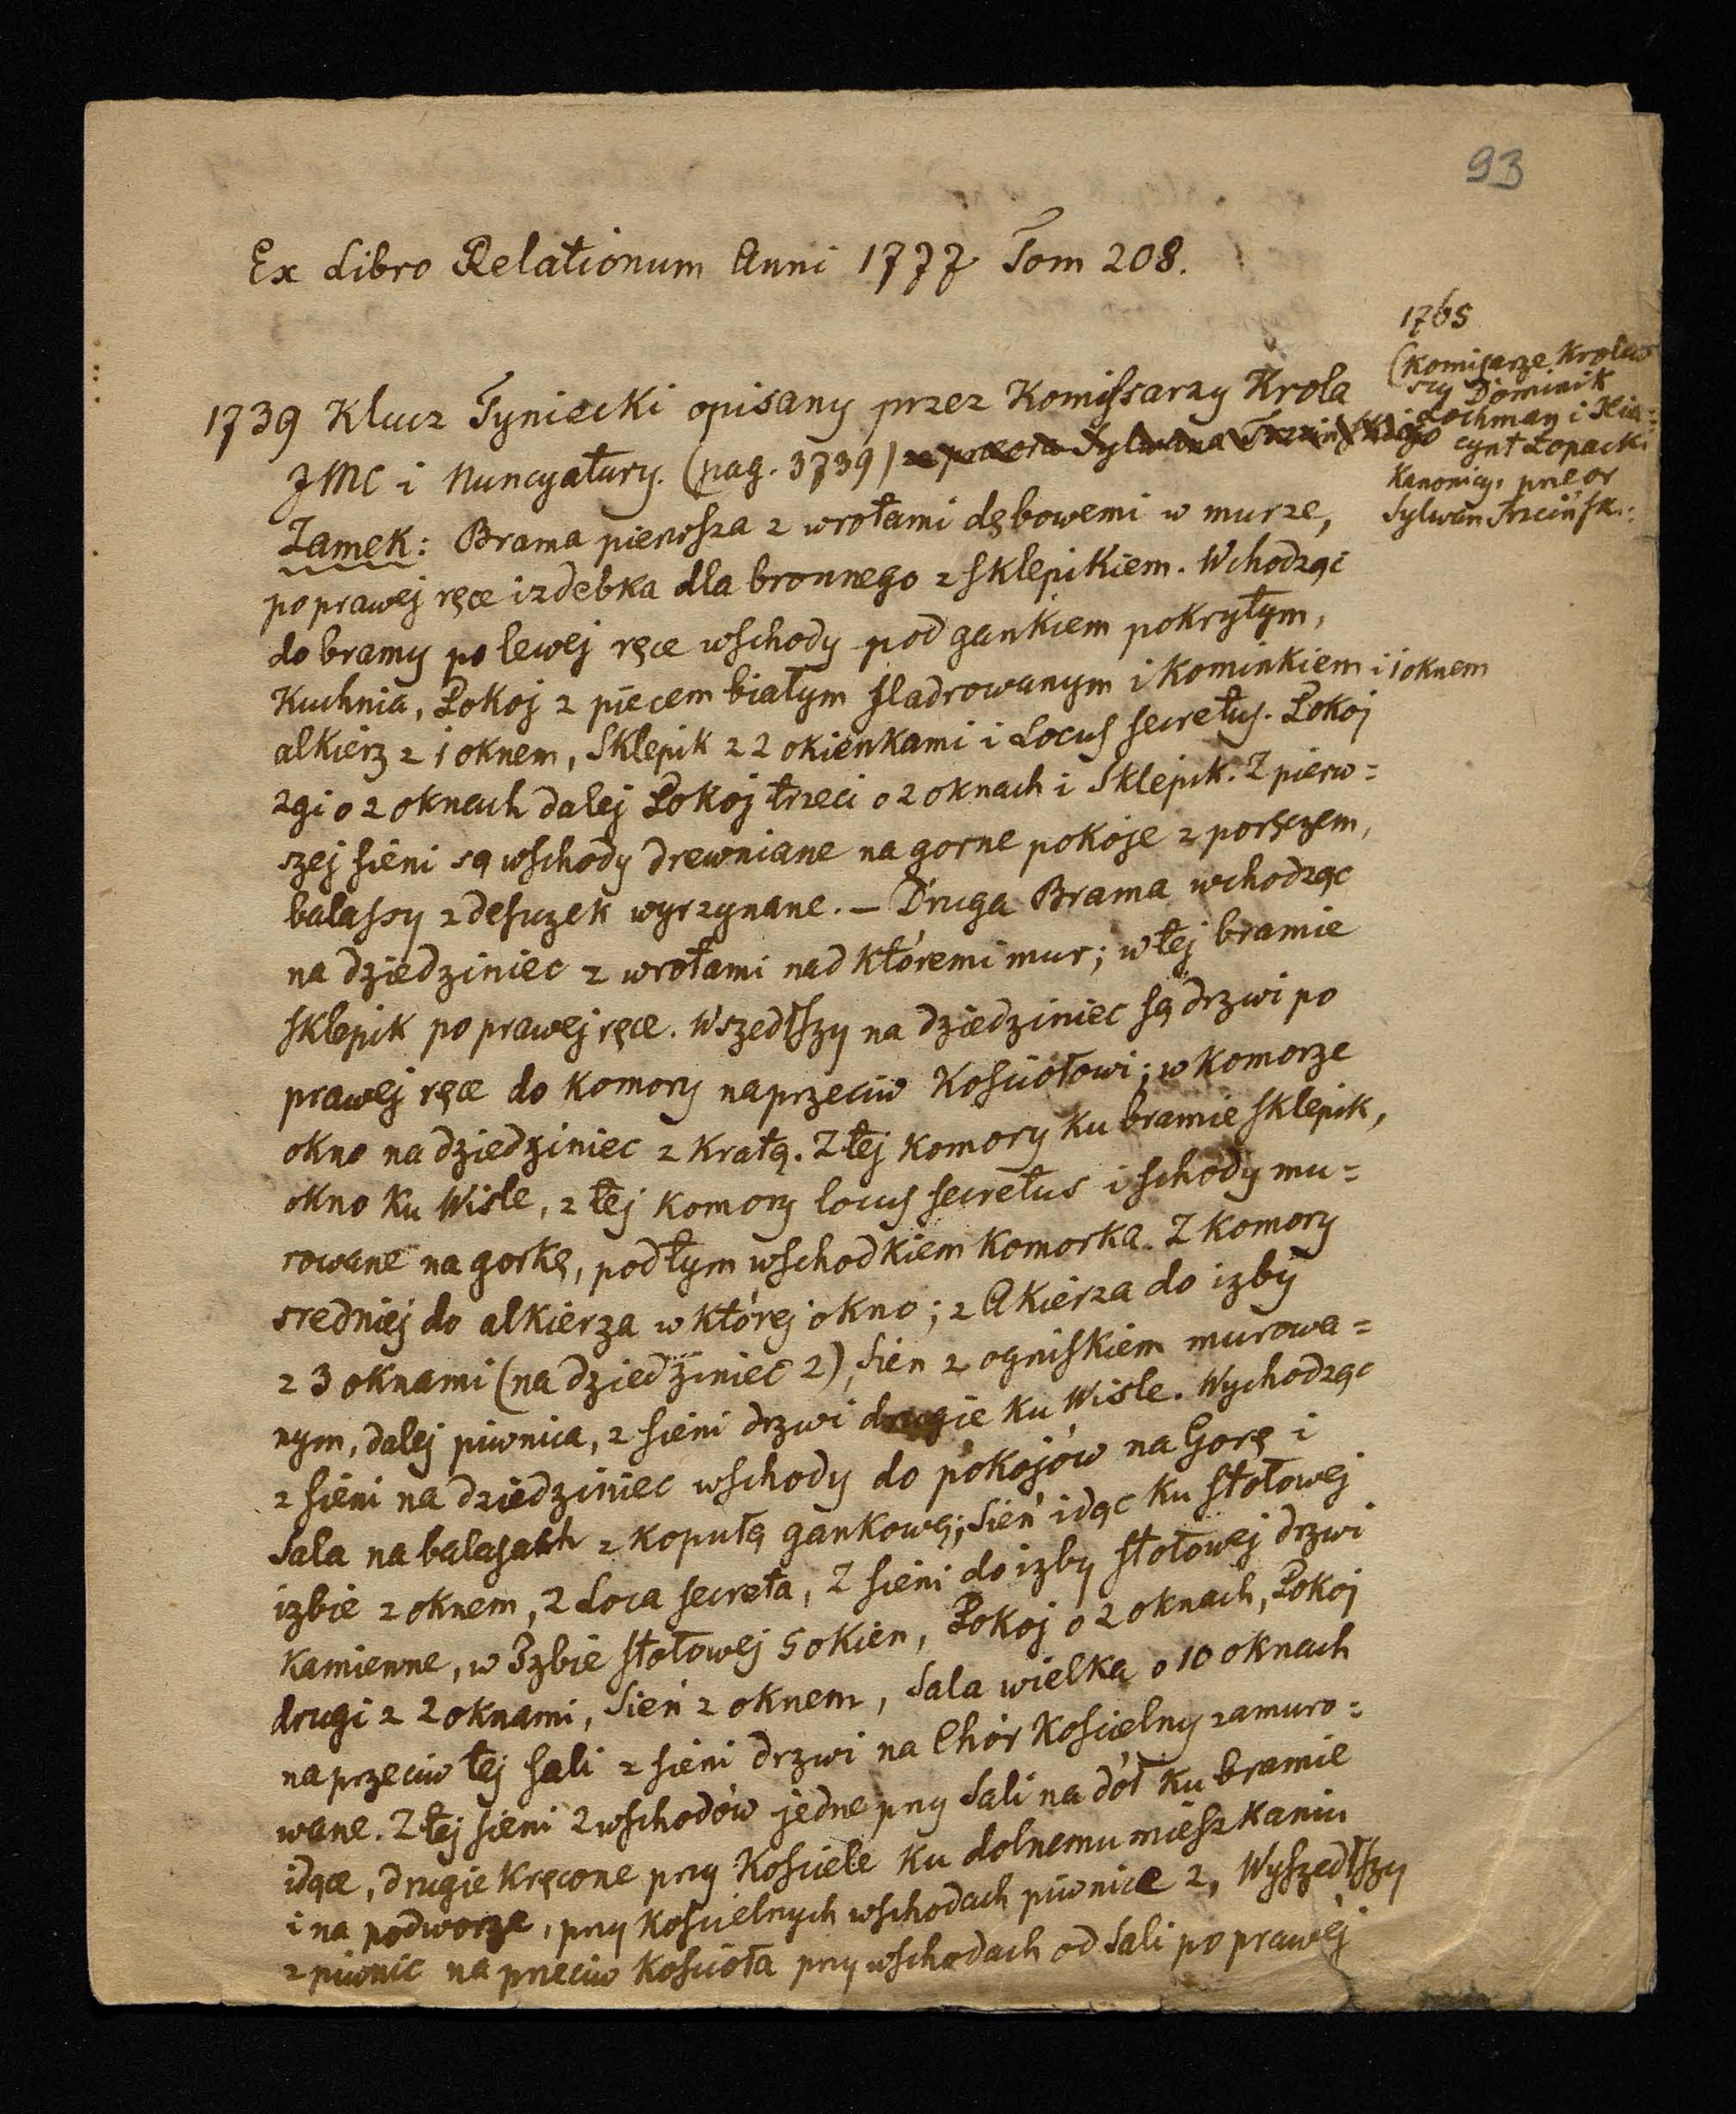 93
Ex Libro Relationum Anni 1777 Tom 208.
1739 Klucz Tyniecki opisany przez Komissarzy Krola
JMC i Nuncyatury. (pag. 3739) za przeora Sylwana Trzcińskiego
1765
(Komisarze Krolew
scy Dominik
Lochman i Hia=
cynt Łopacki
Kanonicy, przeor
Sylwan Trzcińsk..
Zamek: Brama pierwsza z wrotami dębowemi w murze,
po prawej ręce izdebka dla bronnego z sklepikiem. Wchodząc
do bramy po lewej ręce wschody pod gankiem pokrytym,
Kuchnia, Pokoj z piecem białym fladrowanym i Kominkiem i 1 oknem
alkierz z 1 oknem, Sklepik z 2 okienkami i Locus secretus. Pokoj
2gi o 2 oknach dalej Pokoj trzeci o 2 oknach i Sklepik. Z pierw=
szej sieni są wschody drewniane na gorne pokoje z poręczem,
balassy z desuzek wyrzynane. – Druga Brama wchodząc
na dziedziniec z wrotami nad któremi mur; w tej bramie
sklepik po prawej ręce. Wszedłszy na dziedziniec są drzwi po
prawej ręce do komory naprzeciw Kosciołowi; w komorze
okno na dziedziniec z kratą. Z tej komory ku bramie sklepik,
okno ku Wisle, z tej komory locus secretus i schody mu=
rowane na gorkę, pod tym wschodkiem komorka. Z komory
sredniej do alkierza w której okno; z Akierza do izby
z 3 oknami (na dziedziniec 2), Sien z ogniskiem murowa=
nym, dalej piwnica, z sieni drzwi drugie ku Wisle. Wychodząc
z sieni na dziedziniec wschody do pokojów na Gorę i
Sala na balasach z kopułą gankową; Sień idąc ku stołowej
izbie z oknem, 2 Loca secreta, Z sieni do izby stołowej drzwi
Kamienne, w Izbie stołowej 5 okien, Pokoj o 2 oknach, Pokoj
drugi z 2 oknami, Sień z oknem, Sala wielka o 10 oknach
naprzeciw tej sali z sieni drzwi na Chór Koscielny zamuro=
wane. Z tej sieni 2 wschodów jedne przy Sali na dół ku bramie
idące, drugie kręcone przy Kosciele ku dolnemu mieszkaniu
i na podworze, przy Koscielnych wschodach piwnice 2, Wyszedłszy
z piwnic na przeciw Kościoła przy wschodach od Sali po prawej